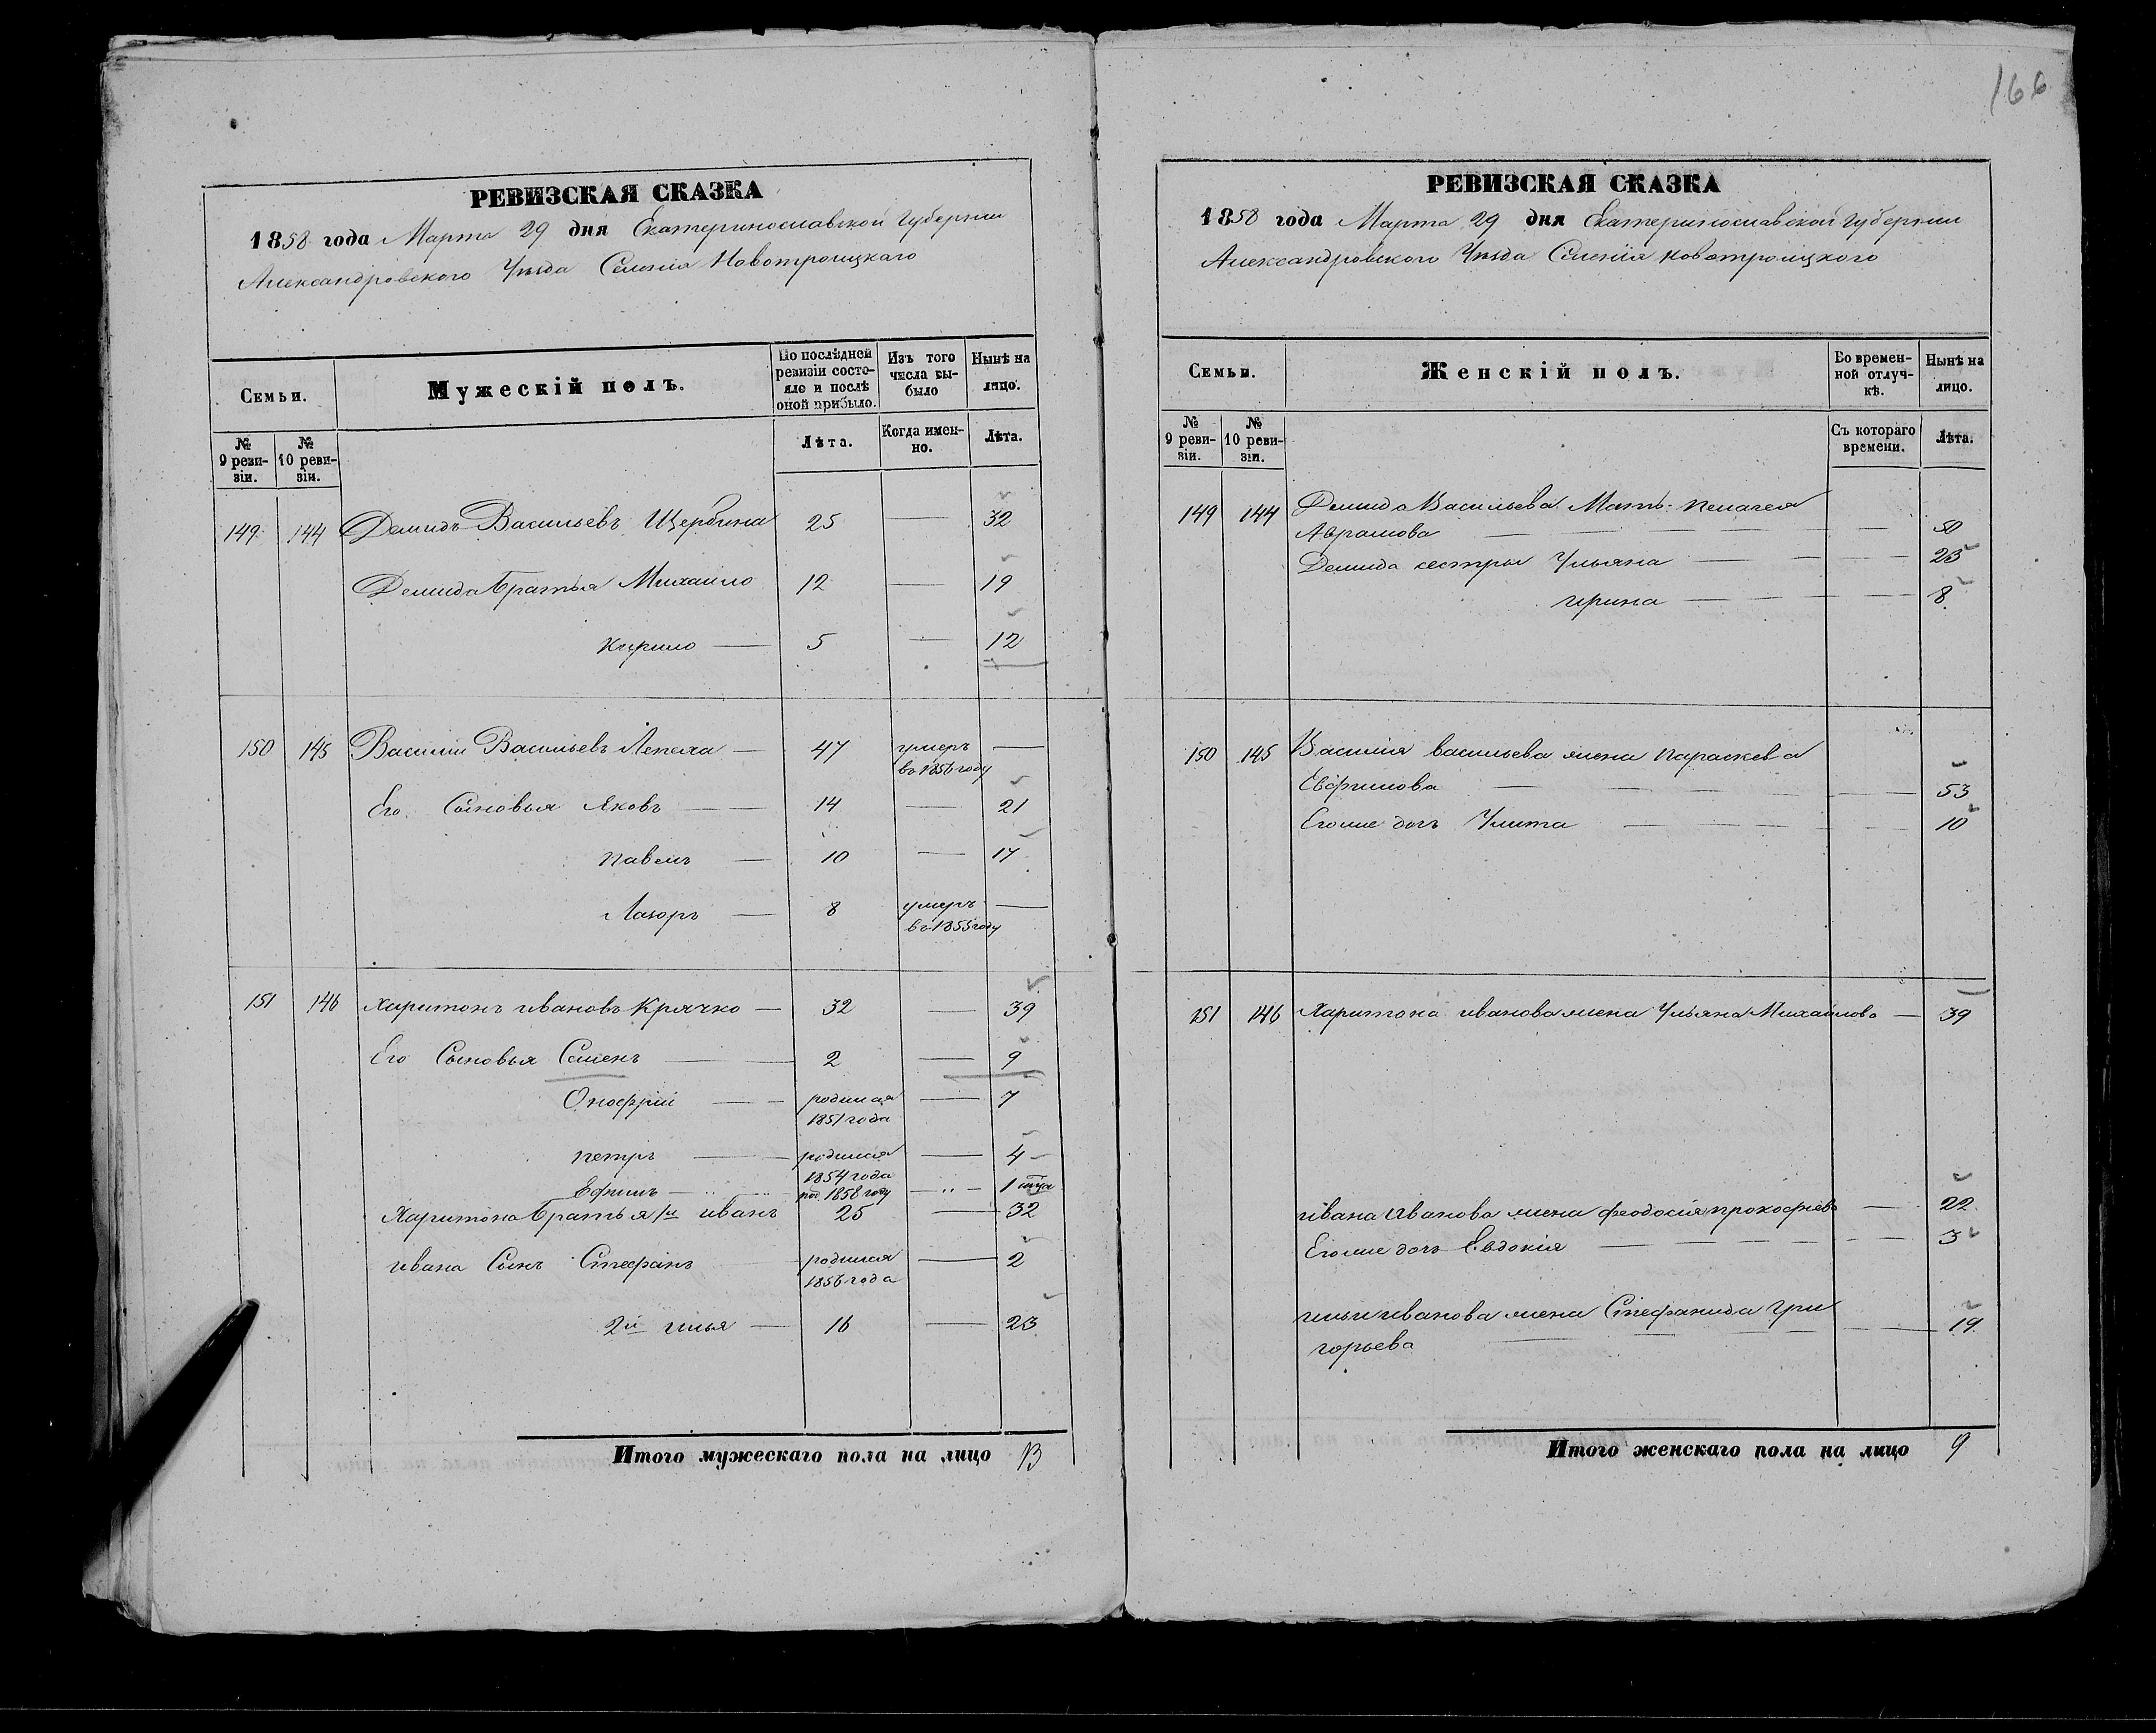 166
РЕВИЗСКАЯ СКАЗКА
1858 года Марта 29 дня Екатеринославской Губернии
Александровского Уѣзда Селенія Новотроицкаго
Семьи.
Мужескій полъ.
По послѣдней ревизіи состояло и послѣ оной прибыло.
Изъ того числа выбыло
Нынѣ на лицо.
№ 9 ревизіи.
№ 10 ревизіи.
Лѣта.
Когда именно.
Лѣта.
149 144 Демидъ Васильевъ Щербина 25 — 32
Демида братья Михаило 12 — 19
Кирило — 5 — 12
150 145 Василий Васильевъ Лепеха — 47 умеръ —
въ 1856 году
Его Сыновья Яковъ — 14 — 21
Павелъ — 10 — 17
Лазоръ — 8 умеръ —
въ 1855 году
151 146 Харитонъ Ивановъ Крячко — 32 — 39
Его Сыновья Семенъ — 2 — 9
Онофрій — родился — 7
1851 года
Петръ — родился — 4
1854 года
Ефимъ — 1858 году — 1
Харитона братья 1й Иванъ 25 — 32
Ивана Сынъ Стефанъ родился — 2
1856 года
2й Илья — 16 — 23
Итого мужескаго пола на лицо 13
РЕВИЗСКАЯ СКАЗКА
1858 года Марта 29 дня Екатеринославской Губернии
Александровского Уѣзда Селенія Новотроицкого
Семьи.
Женскій полъ.
Во временной отлучкѣ.
Нынѣ на лицо.
№ 9 ревизіи.
№ 10 ревизіи.
Съ котораго времени.
Лѣта.
149 144 Демида Васильева Мать Пелагея
Аврамова — — 50
Демида сестры Ульяна — — 23
Ирина — — 8
150 145 Василия Васильева жена Параскева
Евфимова — — 53
Его же дочь Улита — — 10
151 146 Харитона Иванова жена Ульяна Михайлова — 39
Ивана Иванова жена Феодосія Прокофьева — 22
Его же дочь Евдокія — — 3
Ильи Иванова жена Стефанида Гри
горьева — — 19
Итого женскаго пола на лицо 9